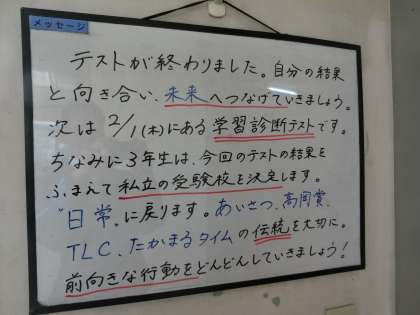 メッセージ
テストが終わりました。自分の結果
と向き合い、未来へつなげていきましょう。
次は2/1(木)にある学習診断テストです。
ちなみに3年生は、今回のテストの結果を
ふまえて私立の受験校を決定します。
"日常"に戻ります。あいさつ、高同賞、
TLC、たかまるタイムの伝統を大切に。
前向きな行動をどんどんしていきましょう!